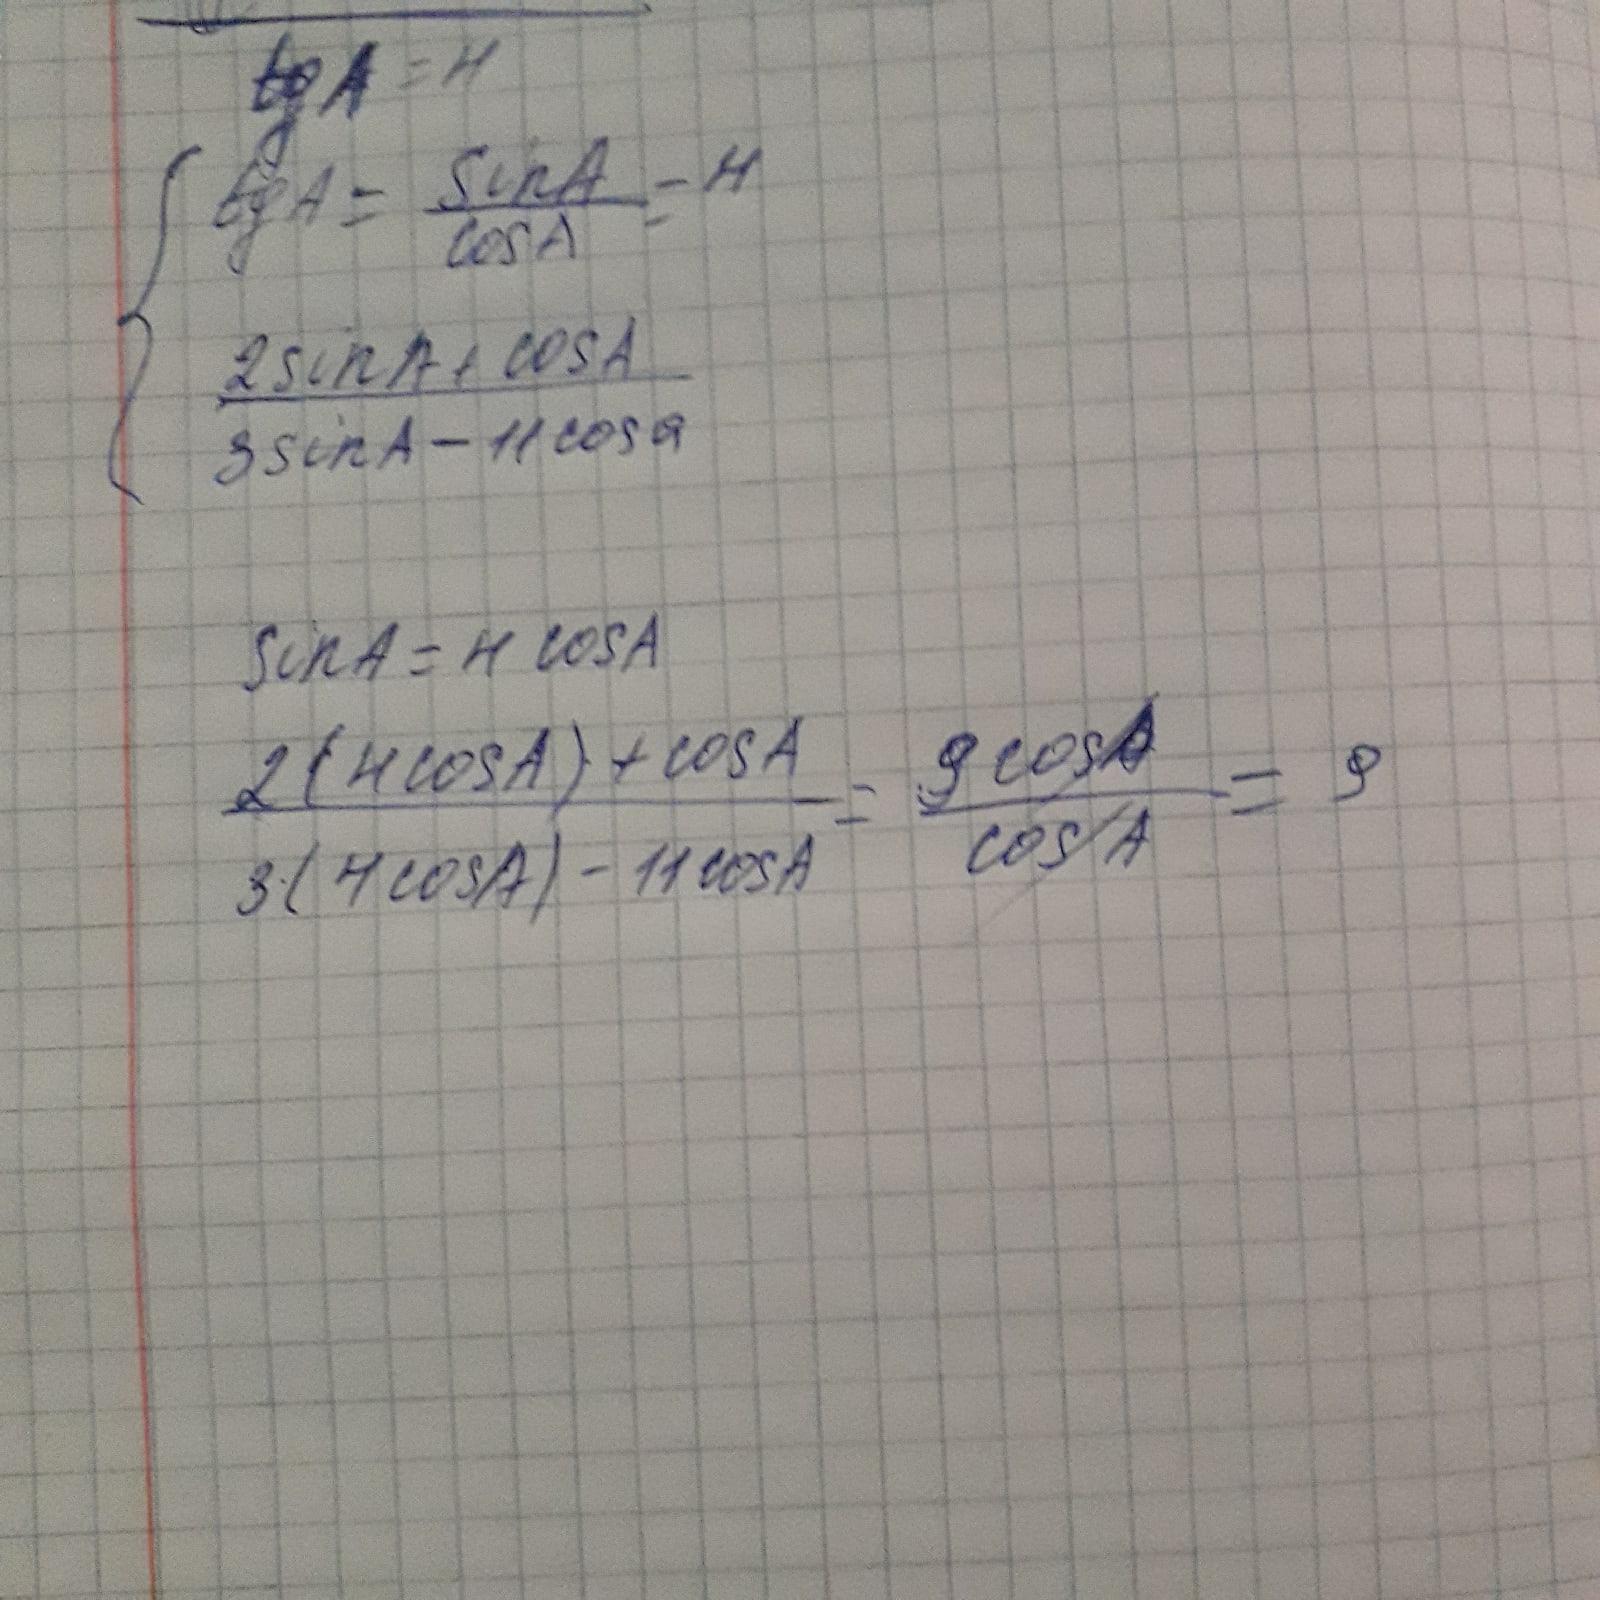 tg A = 4
tg A = sin A / cos A = 4
2 sin A + cos A / 3 sin A - 11 cos a
sin A = 4 cos A
2(4 cos A) + cos A / 3·(4 cos A) - 11 cos A = 9 cos A / cos A = 9